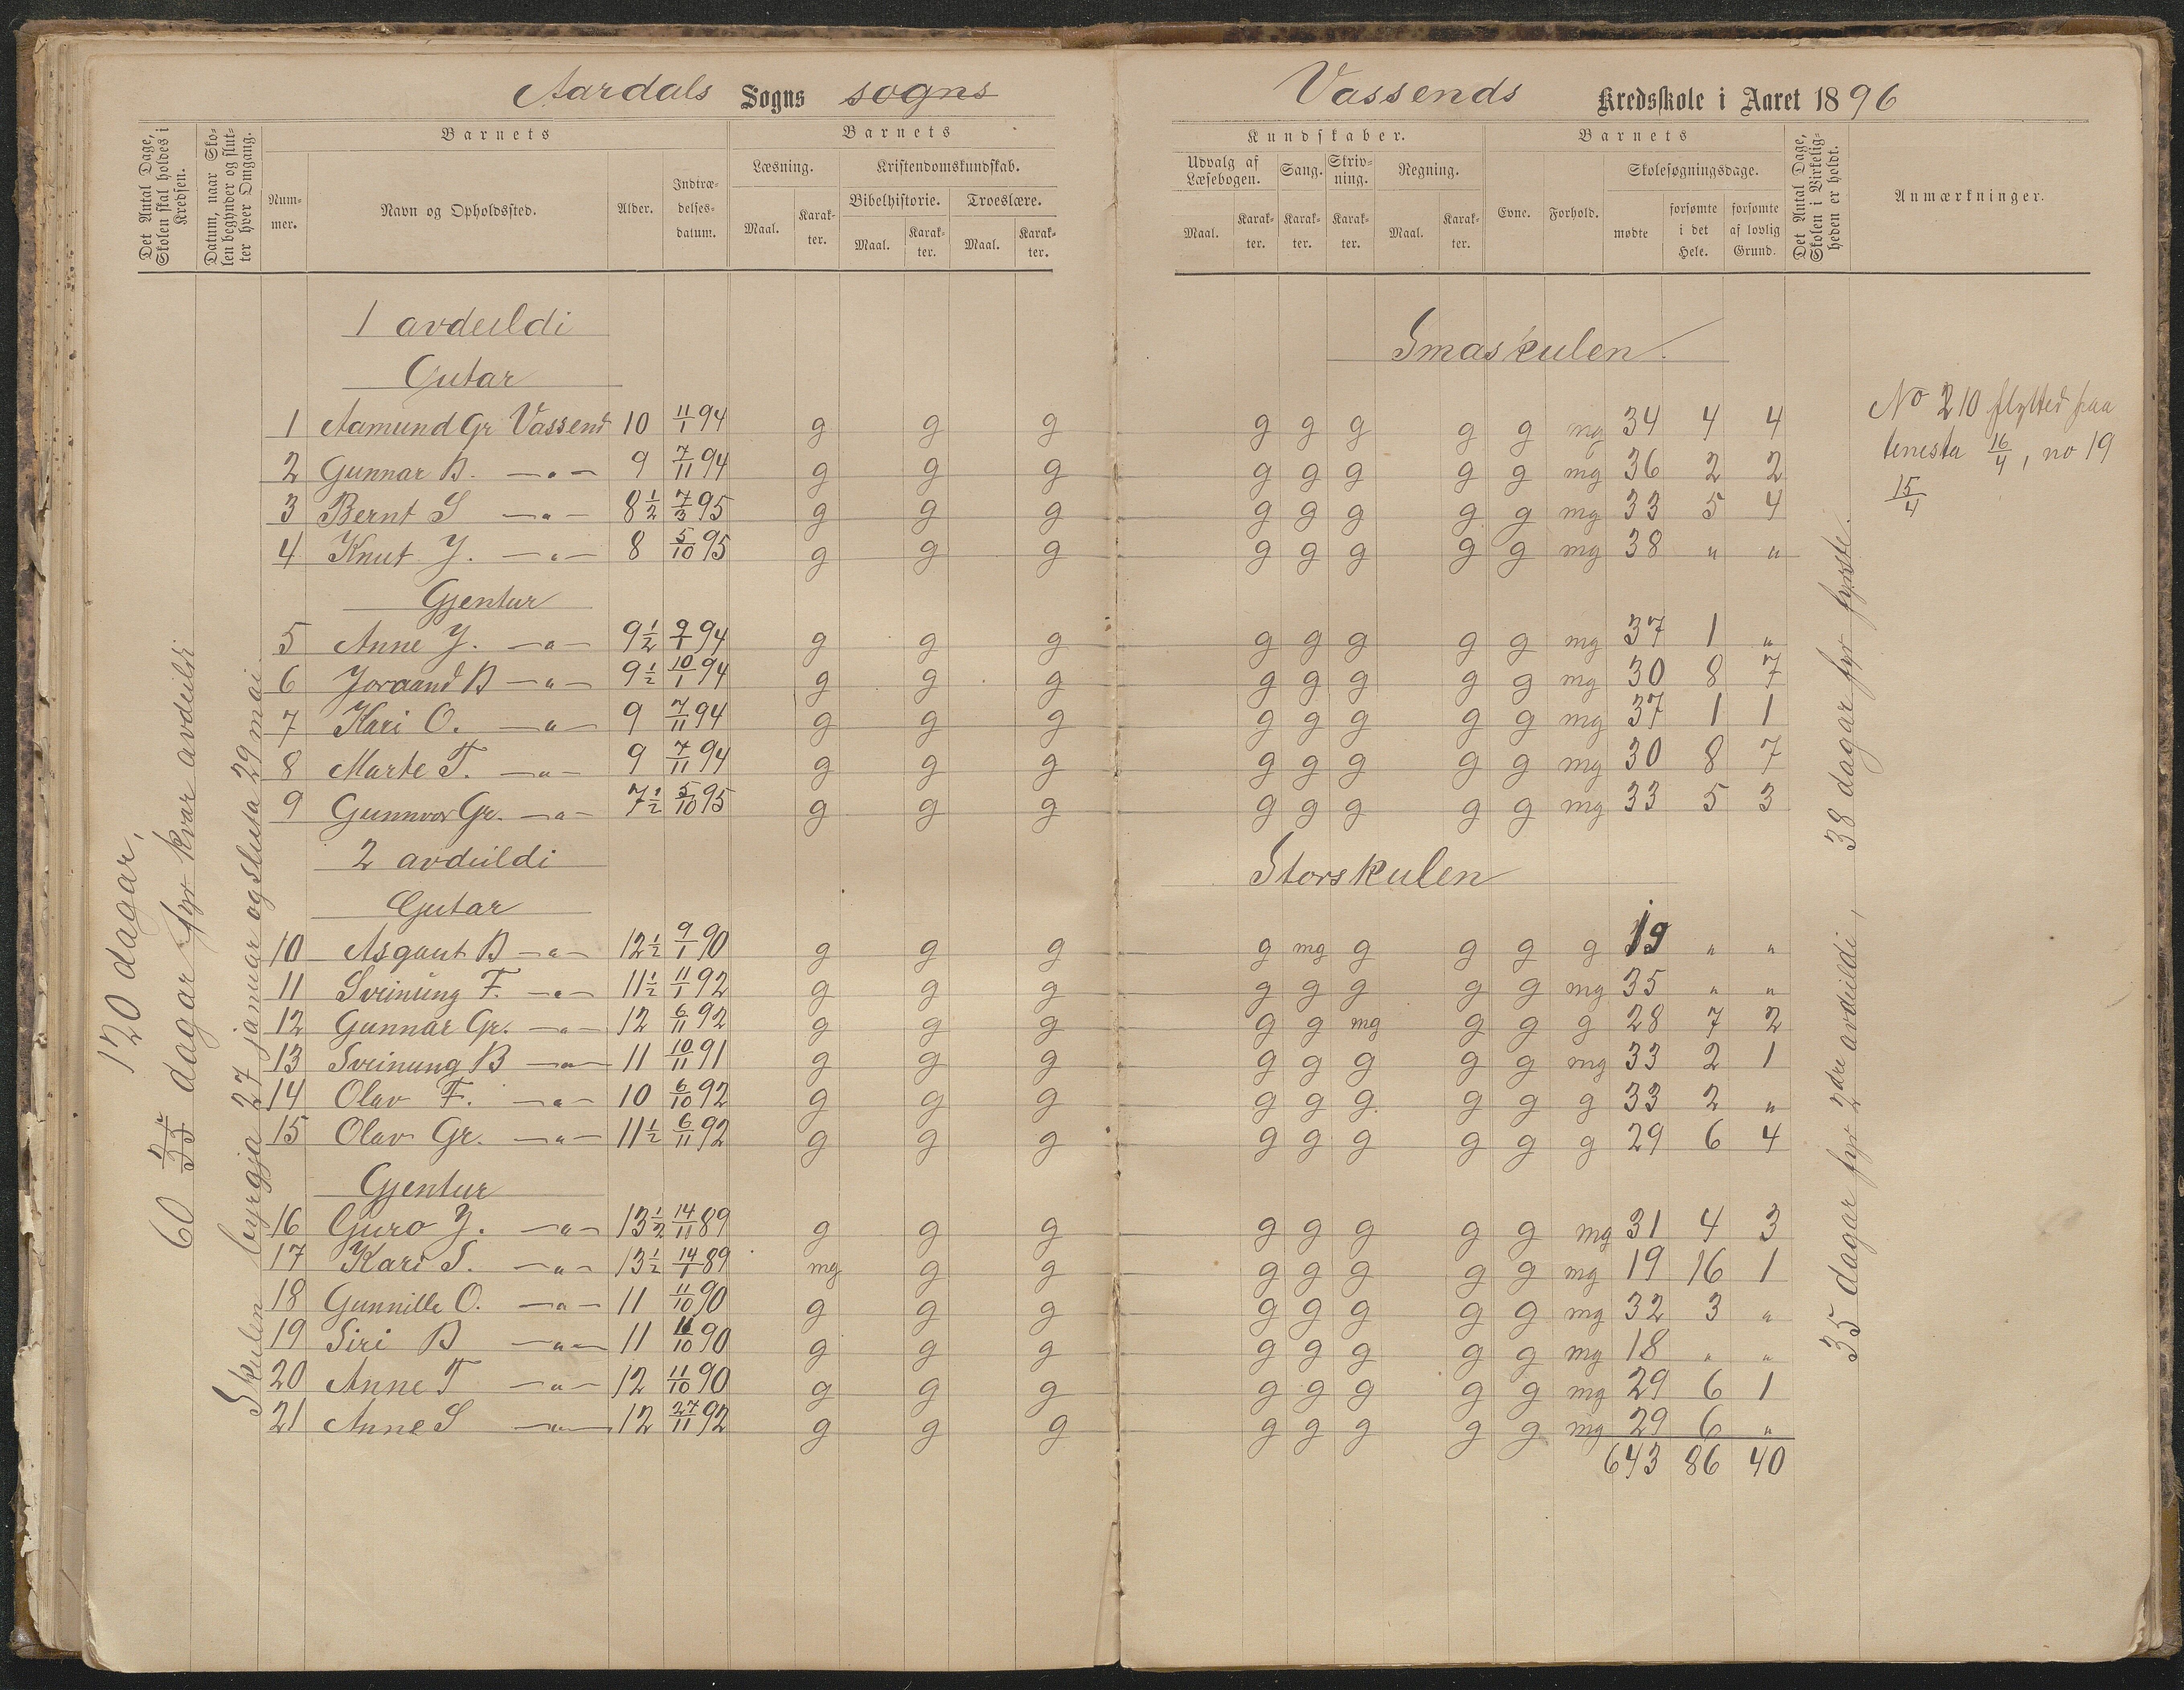 Aardals Sogns sogns
Det Antal Dage, Skolen skal holdes i Kredsen.
Datum, naar Skolen begynder og slutter hver Omgang.
Barnets
Nummer.
Navn og Opholdssted.
Alder.
Indtrædelsesdatum.
Barnets
Læsning.
Maal.
Karakter.
Kristendomskundskab.
Bibelhistorie.
Maal.
Karakter.
Troeslære.
Maal.
Karakter.
120 dagar,
60 35 dagar fyr kvar avdeildi
Skulen byrgja 27 januar og sluta 29 mai
1 avdeildi
Gutar
1 Aamund Gr Vassend 10 11/1 94 g g g
2 Gunnar B. —„— 9 7/11 94 g g g
3 Bernt S —„— 8 1/2 7/3 95 g g g
4 Knut J. —„— 8 5/10 95 g g g
Gjentur
5 Anne J. —„— 9 1/2 9/1 94 g g g
6 Joraand B —„— 9 1/2 10/1 94 g g g
7 Kari O. —„— 9 7/11 94 g g g
8 Marte T. —„— 9 7/11 94 g g g
9 Gunnvor Gr. —„— 7 1/2 5/10 95 g g g
2 avdeildi
Gutar
10 Asgaut B —„— 12 1/2 9/1 90 g g g
11 Sveinung F. —„— 11 1/2 11/1 92 g g g
12 Gunnar Gr. —„— 12 6/11 92 g g g
13 Sveinung B —„— 11 10/11 91 g g g
14 Olav F. —„— 10 6/10 92 g g g
15 Olav Gr. —„— 11 1/2 6/11 92 g g g
Gjentur
16 Guro J. —„— 13 1/2 14/11 89 g g g
17 Kari S. —„— 13 1/2 14/1 89 mg g g
18 Gunnille O. —„— 11 11/10 90 g g g
19 Siri B —„— 11 11/10 90 g g g
20 Anne T —„— 12 11/10 90 g g g
21 Anne S —„— 12 27/11 92 g g g
Vassends Kredsskole i Aaret 1896
Kundskaber.
Udvalg af Læsebogen.
Maal.
Karakter.
Sang.
Karakter.
Skrivning.
Karakter.
Regning.
Maal.
Karakter.
Barnets
Evne.
Forhold.
Skolesøgningsdage.
mødte
forsømte i det Hele.
forsømte af lovlig Grund.
Det Antal Dage, Skolen i Virkeligheden er holdt.
Anmærkninger.
Smaskulen.
g g g g g mg 34 4 4
g g g g g mg 36 2 2
g g g g g mg 33 5 4
g g g g g mg 38 „ „
g g g g g mg 37 1 „
g g g g g mg 30 8 7
g g g g g mg 37 1 1
g g g g g mg 30 8 7
g g g g g mg 33 5 3
Storskulen
g mg g g g g 19 „ „
g g g g g mg 35 „ „
g g mg g g g 28 7 2
g g g g g mg 33 2 1
g g g g g g 33 2 „
g g g g g g 29 6 4
g g g g g mg 31 4 3
g g g g g mg 19 16 1
g g g g g mg 32 3 „
g g g g g mg 18 „ „
g g g g g mg 29 6 1
g g g g g mg 29 6 „
643 86 40
35 dagar fyr 2dre avdeildi, 38 dagar fyr fyrste.
No 210 flytted paa
tenesta 16/4, no 19
15/4